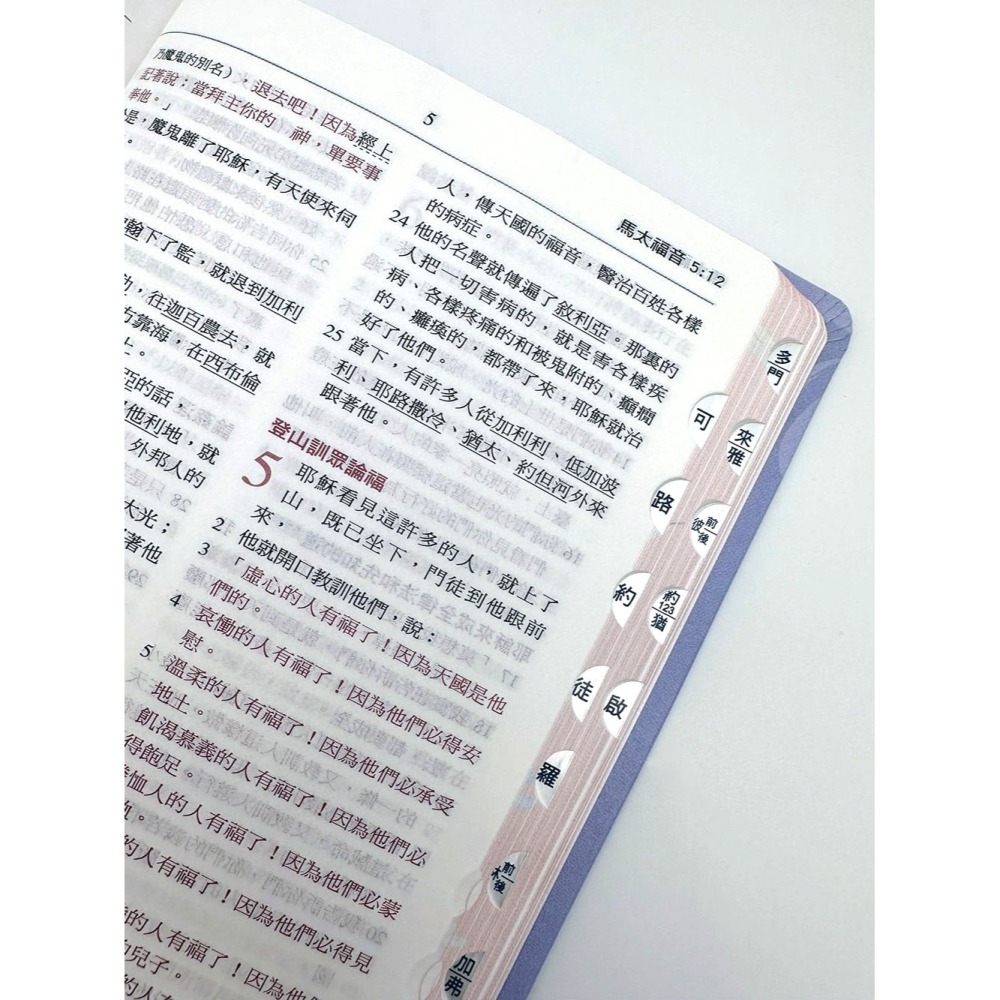 乃魔鬼的別名），退去吧！因為經上
記著說：當拜主你的　神，單要事
奉他。」
是，魔鬼離了耶穌，有天使來伺
下了監，就退到加利
，往迦百農去，就
靠海，在西布倫
亞的話，
他利地，就
外邦人的
大光；
著他
5
馬太福音 5:12
人，傳天國的福音，醫治百姓各樣
的病症。
24 他的名聲就傳遍了敘利亞。那裏的
人把一切害病的，就是害各樣疾
病、各樣疼痛的和被鬼附的、癲癇
的、癱瘓的，都帶了來，耶穌就治
好了他們。
25 當下，有許多人從加利利、低加波
利、耶路撒冷、猶太、約但河外來
跟著他。
登山訓眾論福
5 耶穌看見這許多的人，就上了
山，既已坐下，門徒到他跟前
來，
2 他就開口教訓他們，說：
3 「虛心的人有福了！因為天國是他
們的。
4 哀慟的人有福了！因為他們必得安
慰。
5 溫柔的人有福了！因為他們必承受
地土。
飢渴慕義的人有福了！因為他們必
得飽足。
恤人的人有福了！因為他們必蒙
的人有福了！因為他們必得見
的人有福了！因為他們
兒子。
的人有福了！因
多
門
可
來
雅
路
前
彼
後
約
約
123
猶
徒
啟
羅
前
木
後
加
弗